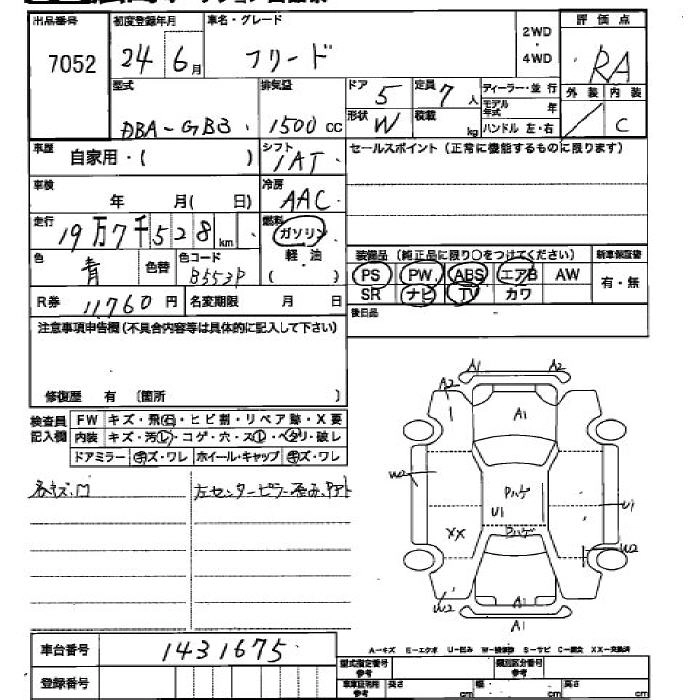 出品番号 初度登録年月 車名・グレード 2WD・4WD 評価点
7052 24 6月 フリード RA
型式 排気量 ドア 5 定員 7人 ディーラー・並行 外装 内装
DBA-GB3 1500cc 形状 W 積載 kg モデル年式 年 ハンドル 左・右 / C
車歴 自家用・( ) シフト IAT セールスポイント(正常に機能するものに限ります)
車検 年 月( 日) 冷房 AAC
走行 19万7千528km 燃料 ガソリン
色 青 色替 色コード B553P 軽油 ( )
装備品(純正品に限り○をつけてください) 新車保証書
PS PW ABS エアB AW 有・無
SR ナビ TV カワ
R券 11,760円 名変期限 月 日 後日品
注意事項申告欄(不具合内容等は具体的に記入して下さい)
修復歴 有 (箇所 )
検査員記入欄 FW キズ・飛石・ヒビ割・リペア跡・X要
内装 キズ・汚レ・コゲ・穴・スレ・ヘタリ・破レ
ドアミラー キズ・ワレ ホイール・キャップ キズ・ワレ
左センターピラー歪み
A1 A2
A2 A1
W2
Pハゲ
U1 U1
XX Pハゲ W2
W2 A1
A1
車台番号 1431675
登録番号
A-キズ E-エクボ U-凹み W-補修跡 S-サビ C-腐食 XX-交換済
型式指定番号 参考 類別区分番号 参考
車車証明用 参考 長さ cm 幅 cm 高さ cm